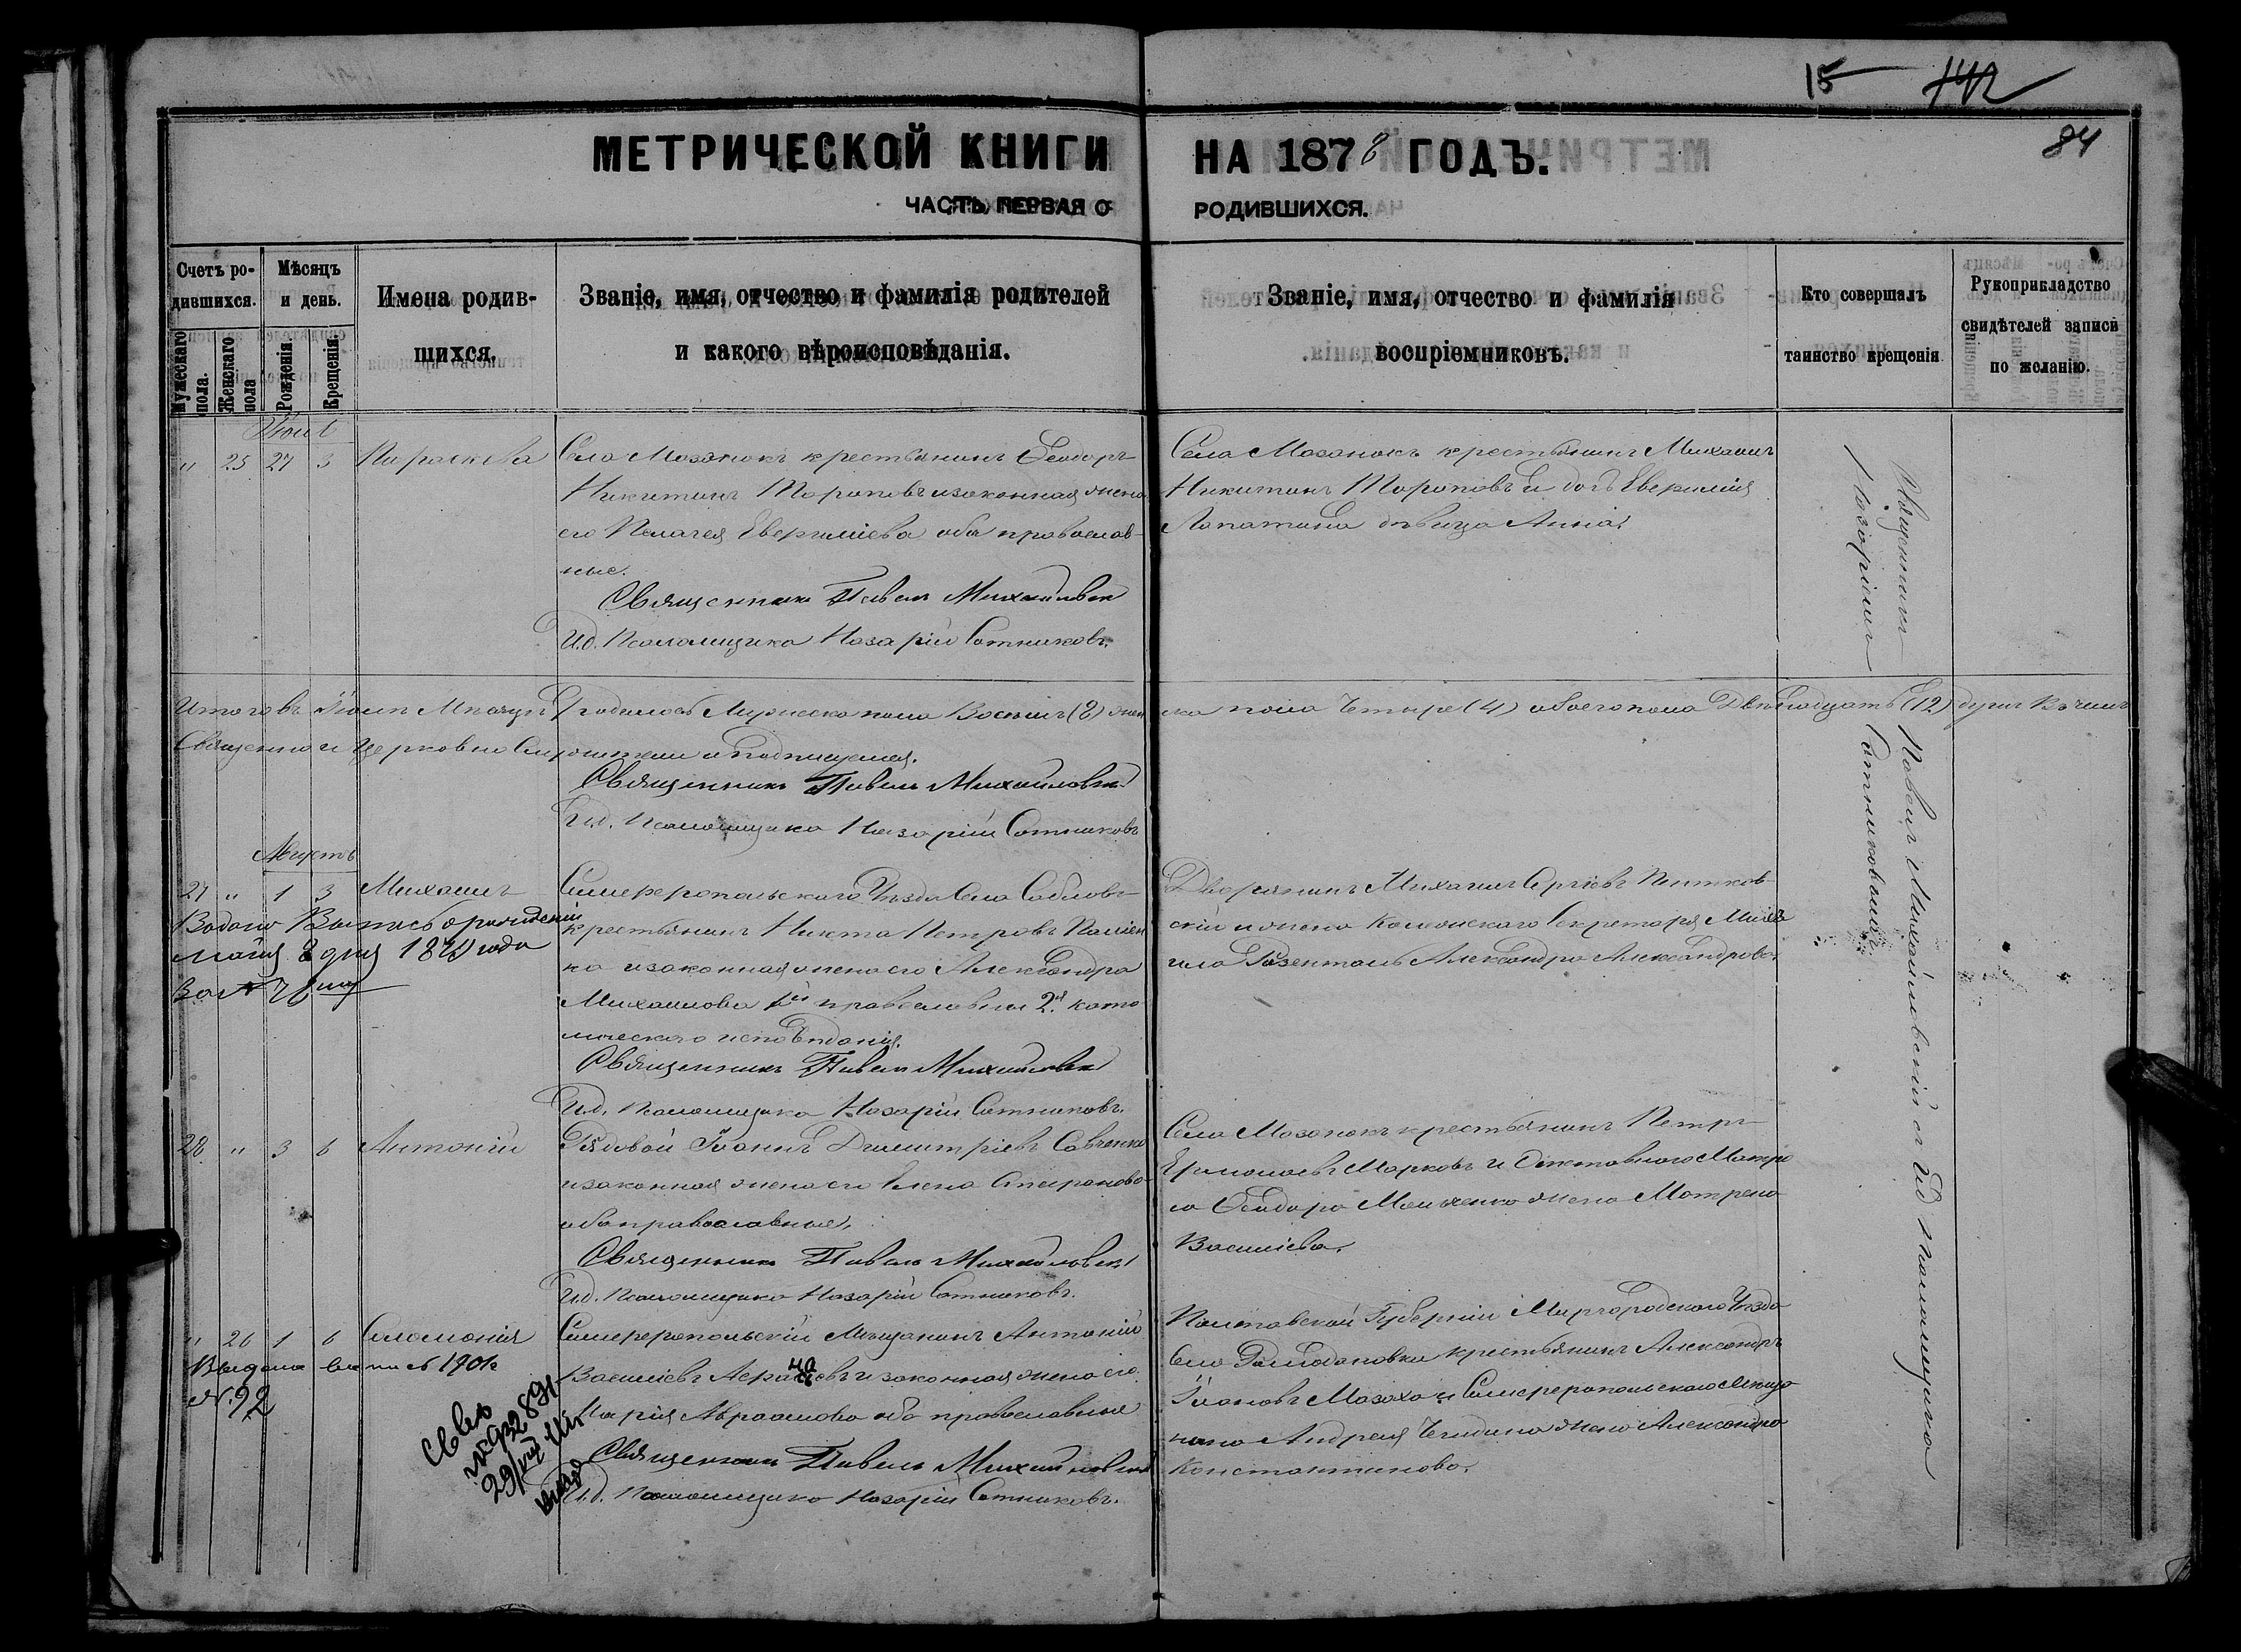 15 142
84
МЕТРИЧЕСКОЙ КНИГИ НА 1878 ГОДЪ.
ЧАСТЬ ПЕРВАЯ О РОДИВШИХСЯ.
Счетъ ро-
дившихся.
Мужескаго пола.
Женскаго пола
Мѣсяцъ
и день.
Рожденія
Крещенія.
Имена родив-
шихся.
Званіе, имя, отчество и фамилія родителей
и какого вѣроисповѣданія.
Званіе, имя, отчество и фамилія
воспріемниковъ.
Кто совершалъ
таинство крещенія
Рукоприкладство
свидѣтелей записи
по желанію.
" 25 27 3 Параскева
Село Мазанокъ крестьянинъ Ѳеодоръ
Никитинъ Тороповъ и законная жена
его Пелагея Евфиміева оба православ-
ные.
Священникъ Павелъ Михайловск
И.д. Псаломщика Назарій Сотниковъ.
Села Мазанокъ крестьянинъ Михаилъ
Никитинъ Тороповъ и дочь Евфимія
Лопатина дѣвица Анна.
Священникъ Павелъ Михайловскій съ И.д. псаломщика
Назаріемъ Сотниковымъ
Итого въ Іюлѣ Мѣсяцѣ родилось Мужеска пола Восемь (8) жен
ска пола Четыре (4) обоего пола Двѣнадцать (12) душъ В чемъ
Священно и Церковно Служители и Подписуемся.
Священникъ Павелъ Михайловск
И.д. Псаломщика Назарій Сотниковъ
Августъ
27 " 1 3 Михаилъ
Симферопольскаго Уѣзда Села Сабловъ
крестьянинъ Никита Петровъ
и законная жена его Александра
Михаилова 1й православный 2я като
лическаго исповѣданія.
Священникъ Павелъ Михайловск
И.д. Псаломщика Назарій Сотниковъ.
Дворянинъ Михаилъ Сергіевъ
скій и жена Колежскаго Секретаря Миха
ила Розенталь Александра Александрова.
28 " 3 6 Антоній
Рядовой Іоаннъ Димитріевъ Савченко
и законная жена его Елена Спиридонова
оба православные.
Священникъ Павелъ Михайловск
И.д. Псаломщика Назарій Сотниковъ.
Села Мазанокъ крестьянинъ Петръ
Ермолаевъ Марковъ и Отставнаго Матро
са Ѳеодора жена Матрена
Василіева.
" 26 1 6 Соломонія
Выдана выпись 1901г
№ 92
Симферопольскій Мѣщанинъ Антоній
и законная жена его
Марія Авраамова оба православные
Священникъ Павелъ Михайловскій
И.д. Псаломщика Назарій Сотниковъ.
Полтавской Губерніи Миргородскаго Уѣзда
крестьянинъ Александръ
Іоановъ и Симферопольскаго Мѣща
нина Андрея жена Александра
Константинова.